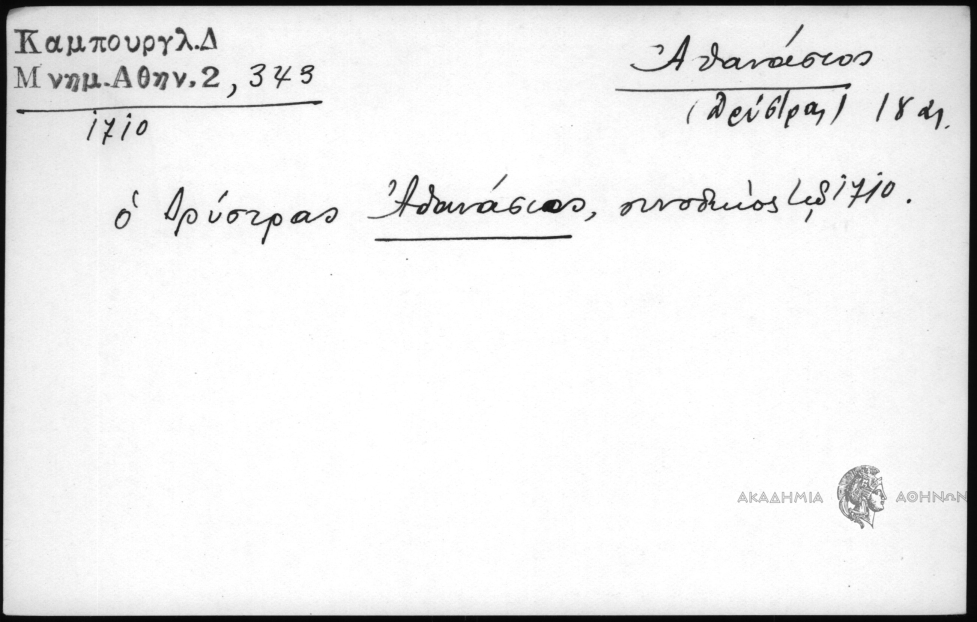 Καμπουργλ.Δ
Μνημ.Αθην.2, 343
1710
Ἀθανάσιος
(Δρύστρας) 18 αι.
ὁ Δρύστρας Ἀθανάσιος, συνοδικὸς 1710.
ΑΚΑΔΗΜΙΑ ΑΘΗΝΩΝ